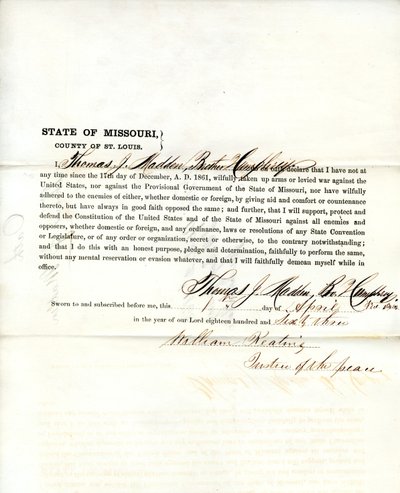 STATE OF MISSOURI,
COUNTY OF ST. LOUIS.
I, Thomas J. Madden, Brother Humphrey do declare that I have not at
any time since the 17th day of December, A. D. 1861, wilfully taken up arms or levied war against the
United States, nor against the Provisional Government of the State of Missouri, nor have wilfully
adhered to the enemies of either, whether domestic or foreign, by giving aid and comfort or countenance
thereto, but have always in good faith opposed the same; and further, that I will support, protect and
defend the Constitution of the United States and of the State of Missouri against all enemies and
opposers, whether domestic or foreign, and any ordinance, laws or resolutions of any State Convention
or Legislature, or of any order or organization, secret or otherwise, to the contrary notwithstanding;
and that I do this with an honest purpose, pledge and determination, faithfully to perform the same,
without any mental reservation or evasion whatever, and that I will faithfully demean myself while in
office.
Thomas J. Madden, Bro. Humphrey,
Sworn to and subscribed before me, this day of April
in the year of our Lord eighteen hundred and Sixty three
William Keating
Justice of the peace